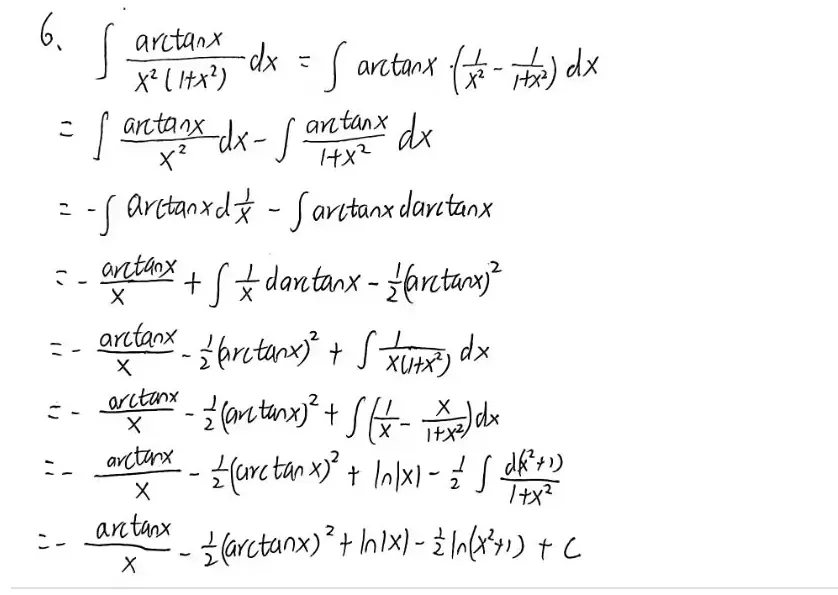 6、 ∫ arctanx / x²(1+x²) dx = ∫ arctanx · (1/x² - 1/1+x²) dx
= ∫ arctanx/x² dx - ∫ arctanx/1+x² dx
= - ∫ arctanx d 1/x - ∫ arctanx darctanx
= - arctanx/x + ∫ 1/x darctanx - 1/2 (arctanx)²
= - arctanx/x - 1/2 (arctanx)² + ∫ 1/x(1+x²) dx
= - arctanx/x - 1/2 (arctanx)² + ∫ (1/x - x/1+x²) dx
= - arctanx/x - 1/2 (arctanx)² + ln|x| - 1/2 ∫ d(x²+1)/1+x²
= - arctanx/x - 1/2 (arctanx)² + ln|x| - 1/2 ln(x²+1) + C